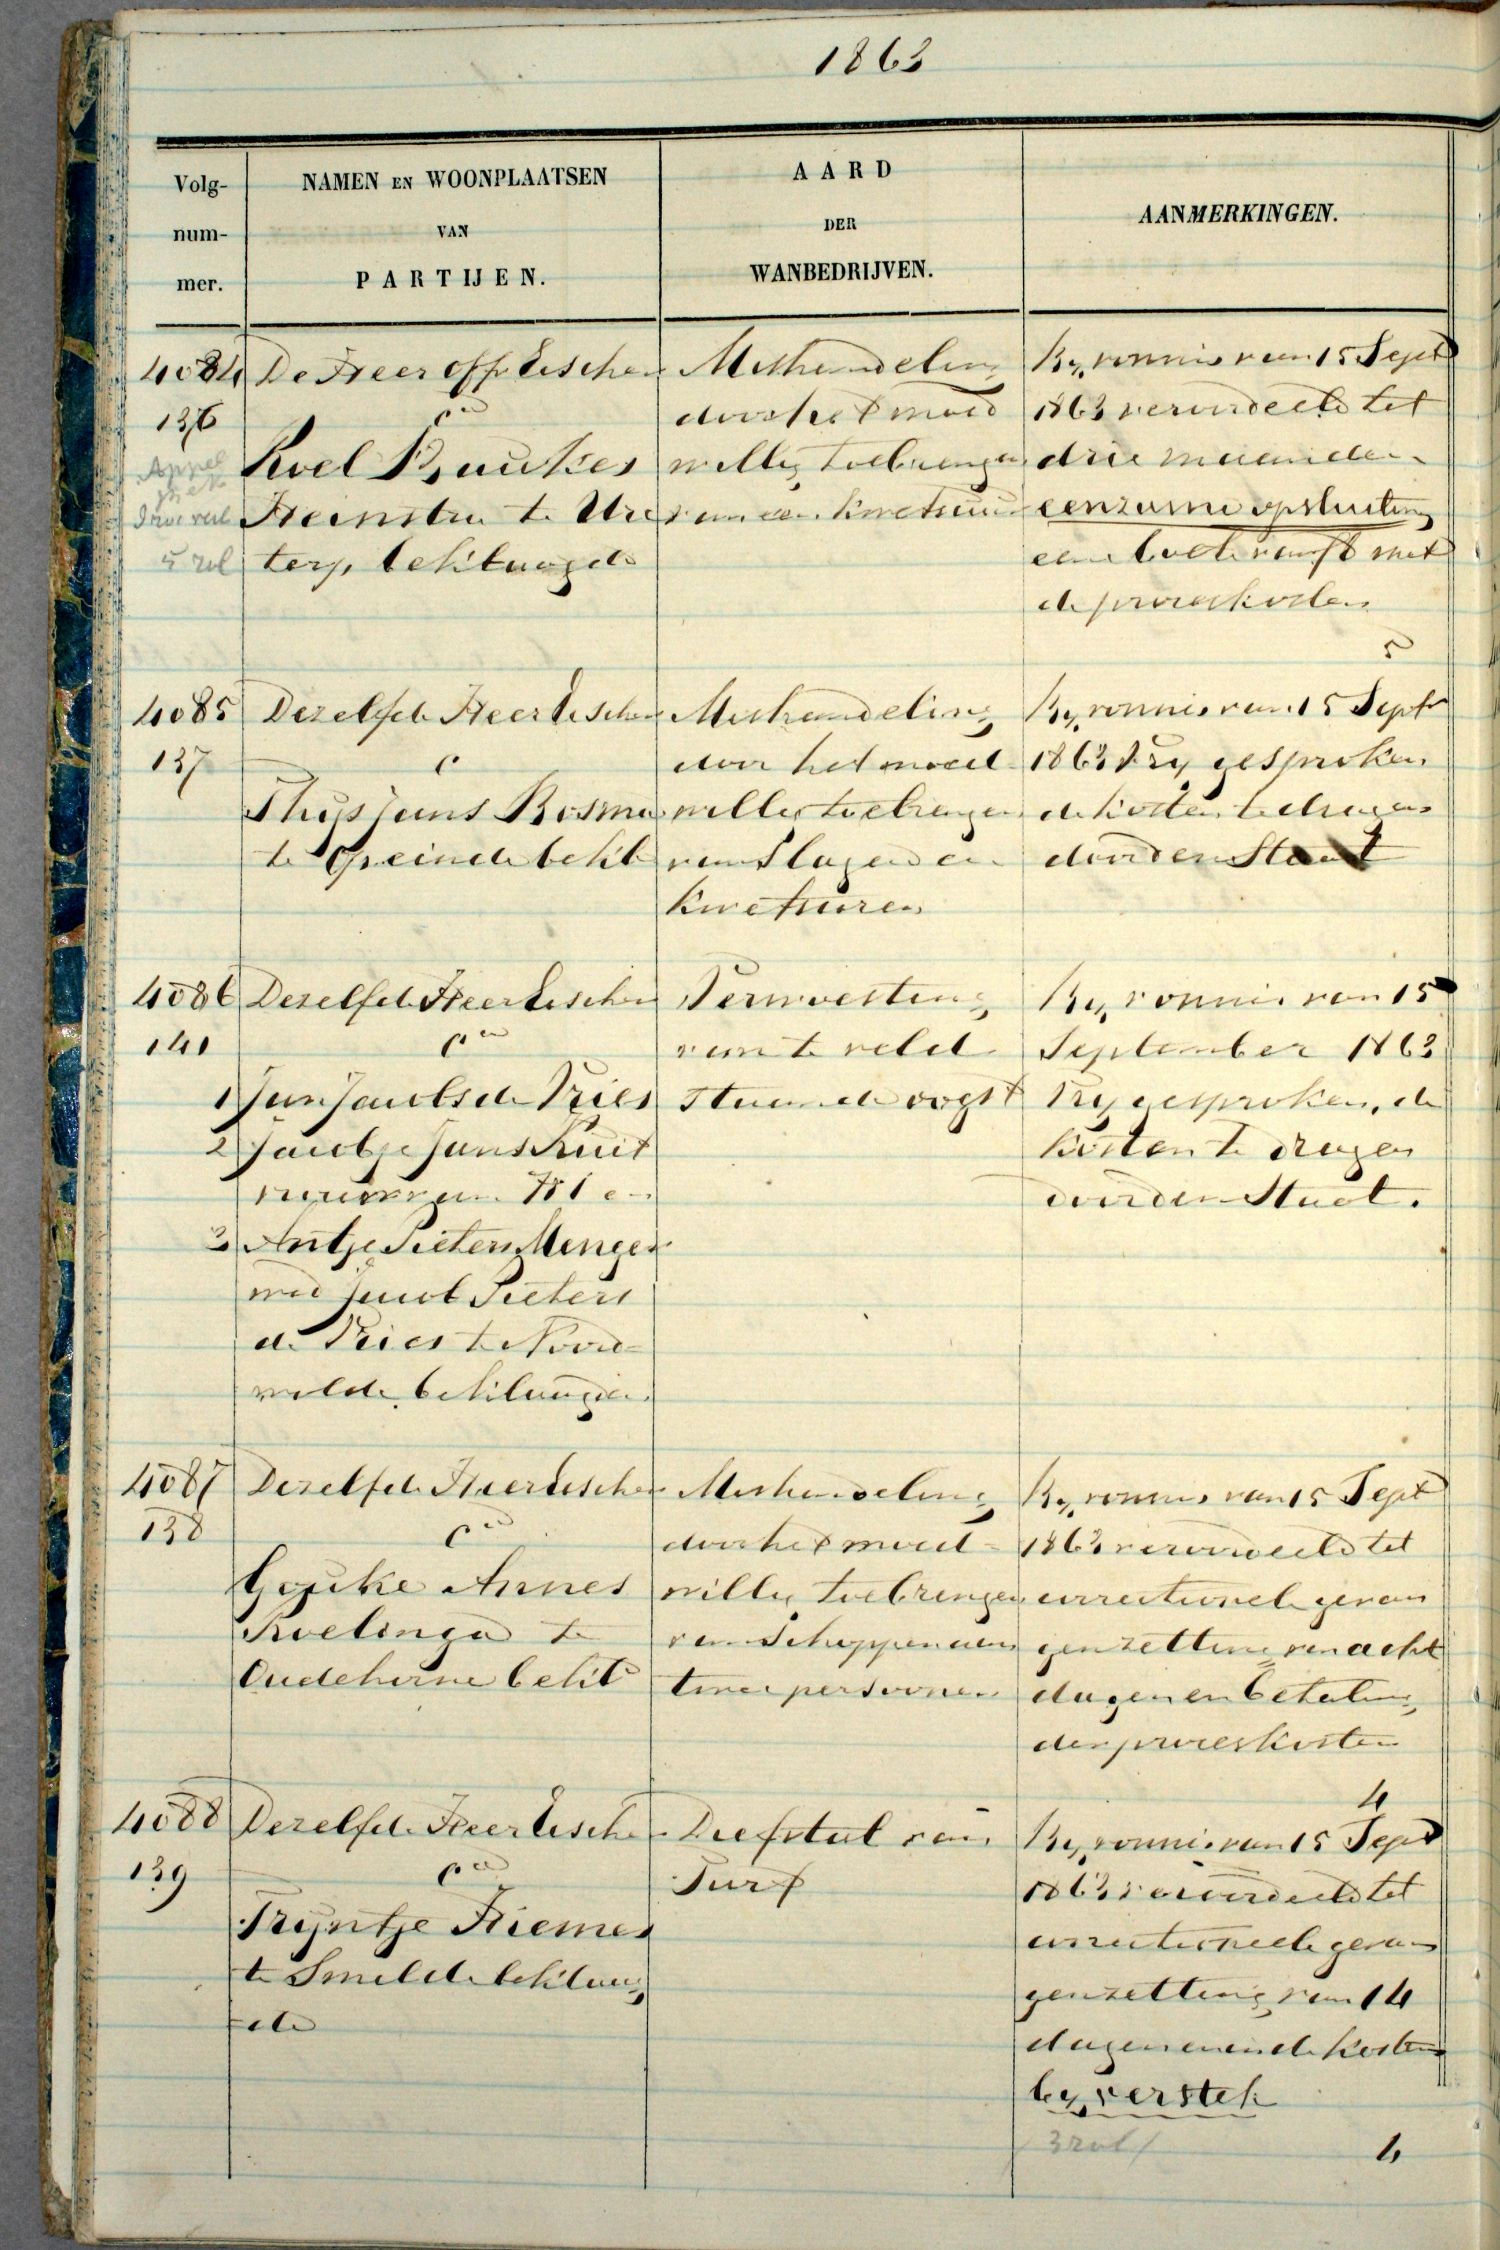 1863
Volg-
num-
mer.
NAMEN EN WOONPLAATSEN
VAN
PARTIJEN.
AARD
DER
WANBEDRIJVEN.
AANMERKINGEN.
4084
136
Appel
5 rol
De Heer Offr Eischer
ca
Roel Baukes
Heinstra te Ure
terp, beklaagde
Mishandeling
door het moed
willig toebrengen
van een kwetsuur
By vonnis van 15 Sept
1863 veroordeeld tot
drie maanden
eenzame opsluiting
eene boete van f8 met
de proceskosten
5
4085
137
Dezelfde Heer Eischer
c
Thijs Jans Bosma
te Opeinde bekl
Mishandeling
door het moed-
willig toebrengen
van Slagen en
kwetsuren
By vonnis van 15 Septr
1863 Vry gesproken
de kosten te dragen
door den Staat
4086
141
Dezelfde Heer Eischer
ca
1 Jan Jacobs de Vries
2 Jacobje Jans Kuit
vrouw van No 1 en
3 Antje Pieters Menger
wed Jacob Pieters
de Vries te Noord-
wolde, beklaagden
Verwoesting
van te veld
staande oogst
By vonnis van 15
September 1863
Vry gesproken, de
kosten te dragen
door den Staat.
4087
138
Dezelfde Heer Eischer
ca
Gouke Annes
Roelinga te
Oudehorne bekl
Mishandeling
door het moed-
willig toebrengen
van Schoppen aan
twee personen
By vonnis van 15 Sept
1863 veroordeeld tot
correctionele gevan
genzetting van acht
dagen en betaling
der proceskosten
4
4088
139
Dezelfde Heer Eischer
ca
Trijntje Hiemes
te Smilde beklaag
de
Diefstal van
Turf
By vonnis van 15 Sept
1863 veroordeeld tot
correctioneele gevan
genzetting van 14
dagen en in de kosten
by verstek
3 rol /
4